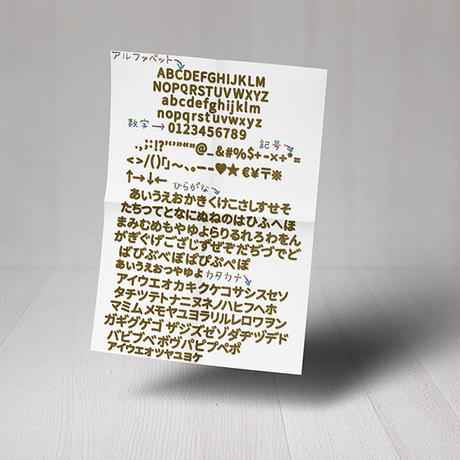 アルファベット
ABCDEFGHIJKLM
NOPQRSTUVWXYZ
abcdefghijklm
nopqrstuvwxyz
数字→0123456789
記号
.,;:!?"'"“”@_&#%$+-×÷*=
<>/()「」〜、。ー–♥★€¥〒※
↑→↓←
ひらがな
あいうえおかきくけこさしすせそ
たちつてとなにぬねのはひふへほ
まみむめもやゆよらりるれろわをん
がぎぐげござじずぜぞだぢづでど
ばびぶべぼぱぴぷぺぽ
あいうえおつやゆよ
カタカナ
アイウエオカキクケコサシスセソ
タチツテトナニヌネノハヒフヘホ
マミムメモヤユヨラリルレロワヲン
ガギグゲゴザジズゼゾダヂヅデド
バビブベボヴパピプペポ
アイウエオツヤユヨケ